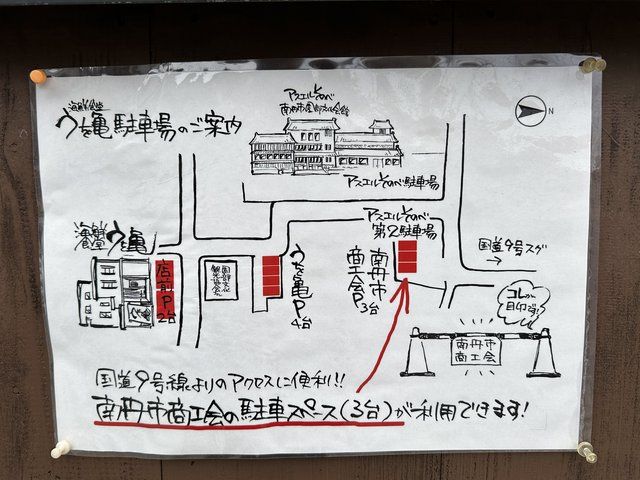 海鮮食堂
うち亀 駐車場のご案内
アスエルそのべ
南丹市園部文化会館
N
アスエルそのべ駐車場
アスエルそのべ
第2駐車場
国道9号スグ
→
海鮮食堂 うち亀
店前P
2台
うち亀P
4台
南丹市
商工会P
3台
コレが
目印です!
南丹市
商工会
国道9号線よりのアクセスに便利!!
南丹市商工会の駐車スペース(3台)が利用できます!